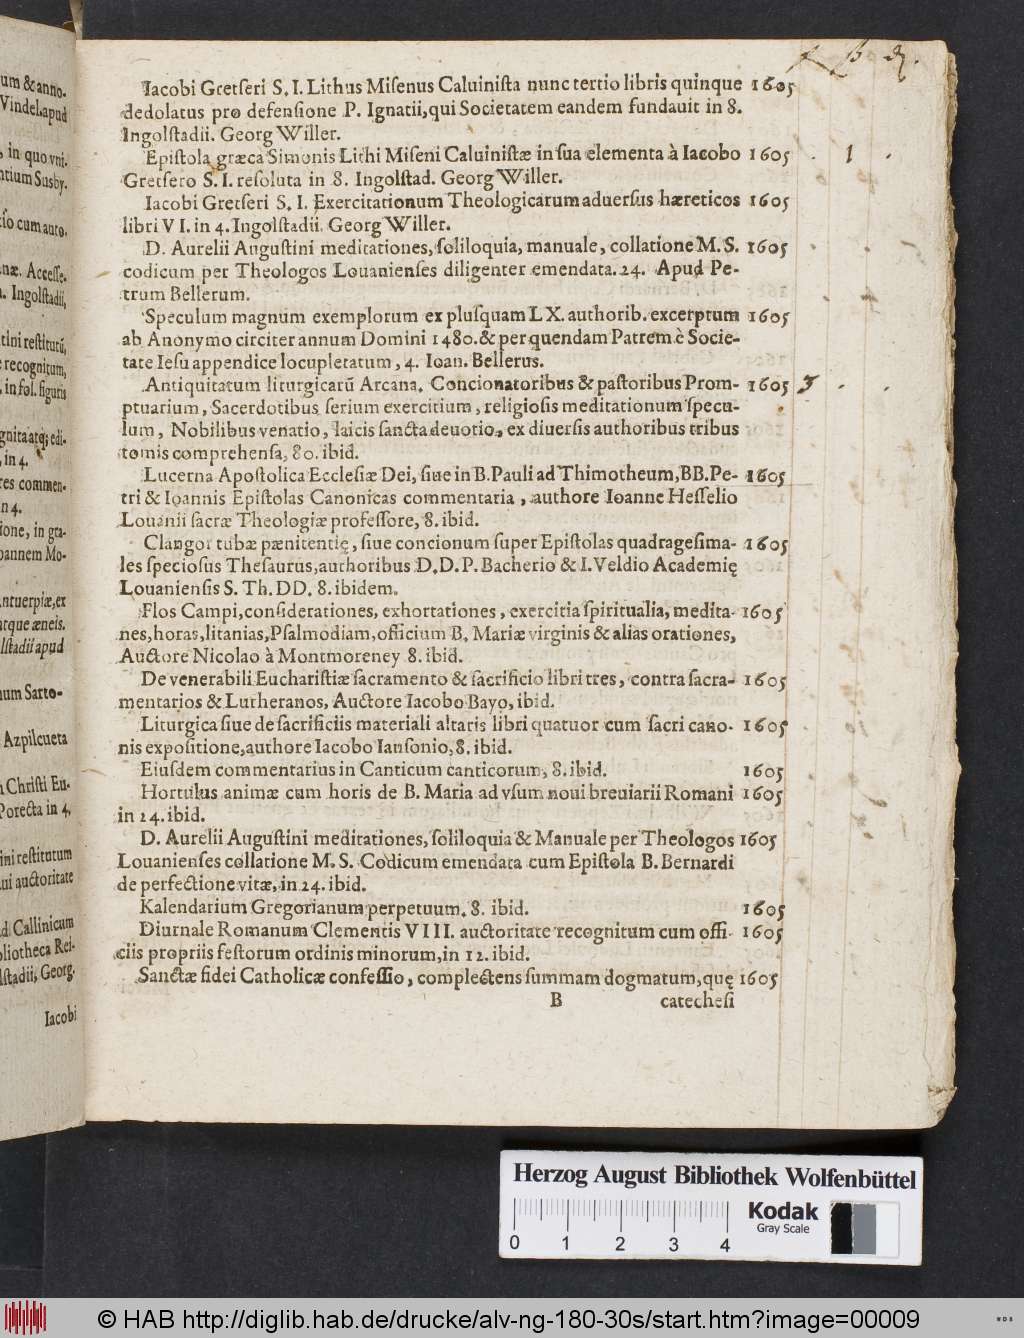 um & anno-
Vindel. apud
in quo vni.
ntium Susby.
cum auto.
næ. Accesse.
Ingolstadii,
tini restitutū,
recognitum,
in fol. figuris
gnita atq; edi-
in 4.
res commen-
n 4.
ione, in gra-
oannem Mo-
Antuerpiæ, ex
atque æneis.
lstadii apud
num Sarto-
Azpilcueta
Christi Eu-
Porecta in 4,
ini restitutum
ui auctoritate
d. Callinicum
bliotheca Rei-
lstadii, Georg.
Iacobi
Iacobi Gretseri S. I. Lithus Misenus Caluinista nunc tertio libris quinque 1605
dedolatus pro defensione P. Ignatii, qui Societatem eandem fundauit in 8.
Ingolstadii. Georg Willer.
Epistola græca Simonis Lithi Miseni Caluinistæ in sua elementa à Iacobo 1605 . 1 .
Gretsero S. I. resoluta in 8. Ingolstad. Georg Willer.
Iacobi Gretseri S. I. Exercitationum Theologicarum aduersus hæreticos 1605
libri VI. in 4. Ingolstadii. Georg Willer.
D. Aurelii Augustini meditationes, soliloquia, manuale, collatione M. S. 1605
codicum per Theologos Louanienses diligenter emendata. 24. Apud Pe-
trum Bellerum.
Speculum magnum exemplorum ex plusquam LX. authorib. excerptum 1605
ab Anonymo circiter annum Domini 1480. & per quendam Patrem è Socie-
tate Iesu appendice locupletatum, 4. Ioan. Bellerus.
Antiquitatum liturgicarū Arcana. Concionatoribus & pastoribus Prom- 1605 3 . .
ptuarium, Sacerdotibus serium exercitium, religiosis meditationum specu-
lum, Nobilibus venatio, laicis sancta deuotio, ex diuersis authoribus tribus
tomis comprehensa, 80. ibid.
Lucerna Apostolica Ecclesiæ Dei, siue in B. Pauli ad Thimotheum, BB. Pe- 1605
tri & Ioannis Epistolas Canonicas commentaria, authore Ioanne Hesselio
Louanii sacræ Theologiæ professore, 8. ibid.
Clangor tubæ pænitentię, siue concionum super Epistolas quadragesima- 1605
les speciosus Thesaurus, authoribus D. D. P. Bacherio & I. Veldio Academię
Louaniensis S. Th. DD. 8. ibidem.
Flos Campi, considerationes, exhortationes, exercitia spiritualia, medita- 1605
nes, horas, litanias, Psalmodiam, officium B. Mariæ virginis & alias orationes,
Auctore Nicolao à Montmoreney 8. ibid.
De venerabili Eucharistiæ sacramento & sacrificio libri tres, contra sacra- 1605
mentarios & Lutheranos, Auctore Iacobo Bayo, ibid.
Liturgica siue de sacrificiis materiali altaris libri quatuor cum sacri cano- 1605
nis expositione, authore Iacobo Iansonio, 8. ibid.
Eiusdem commentarius in Canticum canticorum, 8. ibid. 1605
Hortulus animæ cum horis de B. Maria ad vsum noui breuiarii Romani 1605
in 24. ibid.
D. Aurelii Augustini meditationes, soliloquia & Manuale per Theologos 1605
Louanienses collatione M. S. Codicum emendata cum Epistola B. Bernardi
de perfectione vitæ, in 24. ibid.
Kalendarium Gregorianum perpetuum. 8. ibid. 1605
Diurnale Romanum Clementis VIII. auctoritate recognitum cum offi- 1605
ciis propriis festorum ordinis minorum, in 12. ibid.
Sanctæ fidei Catholicæ confessio, complectens summam dogmatum, quę 1605
B catechesi
Herzog August Bibliothek Wolfenbüttel
Kodak
Gray Scale
0 1 2 3 4
© HAB http://diglib.hab.de/drucke/alv-ng-180-30s/start.htm?image=00009